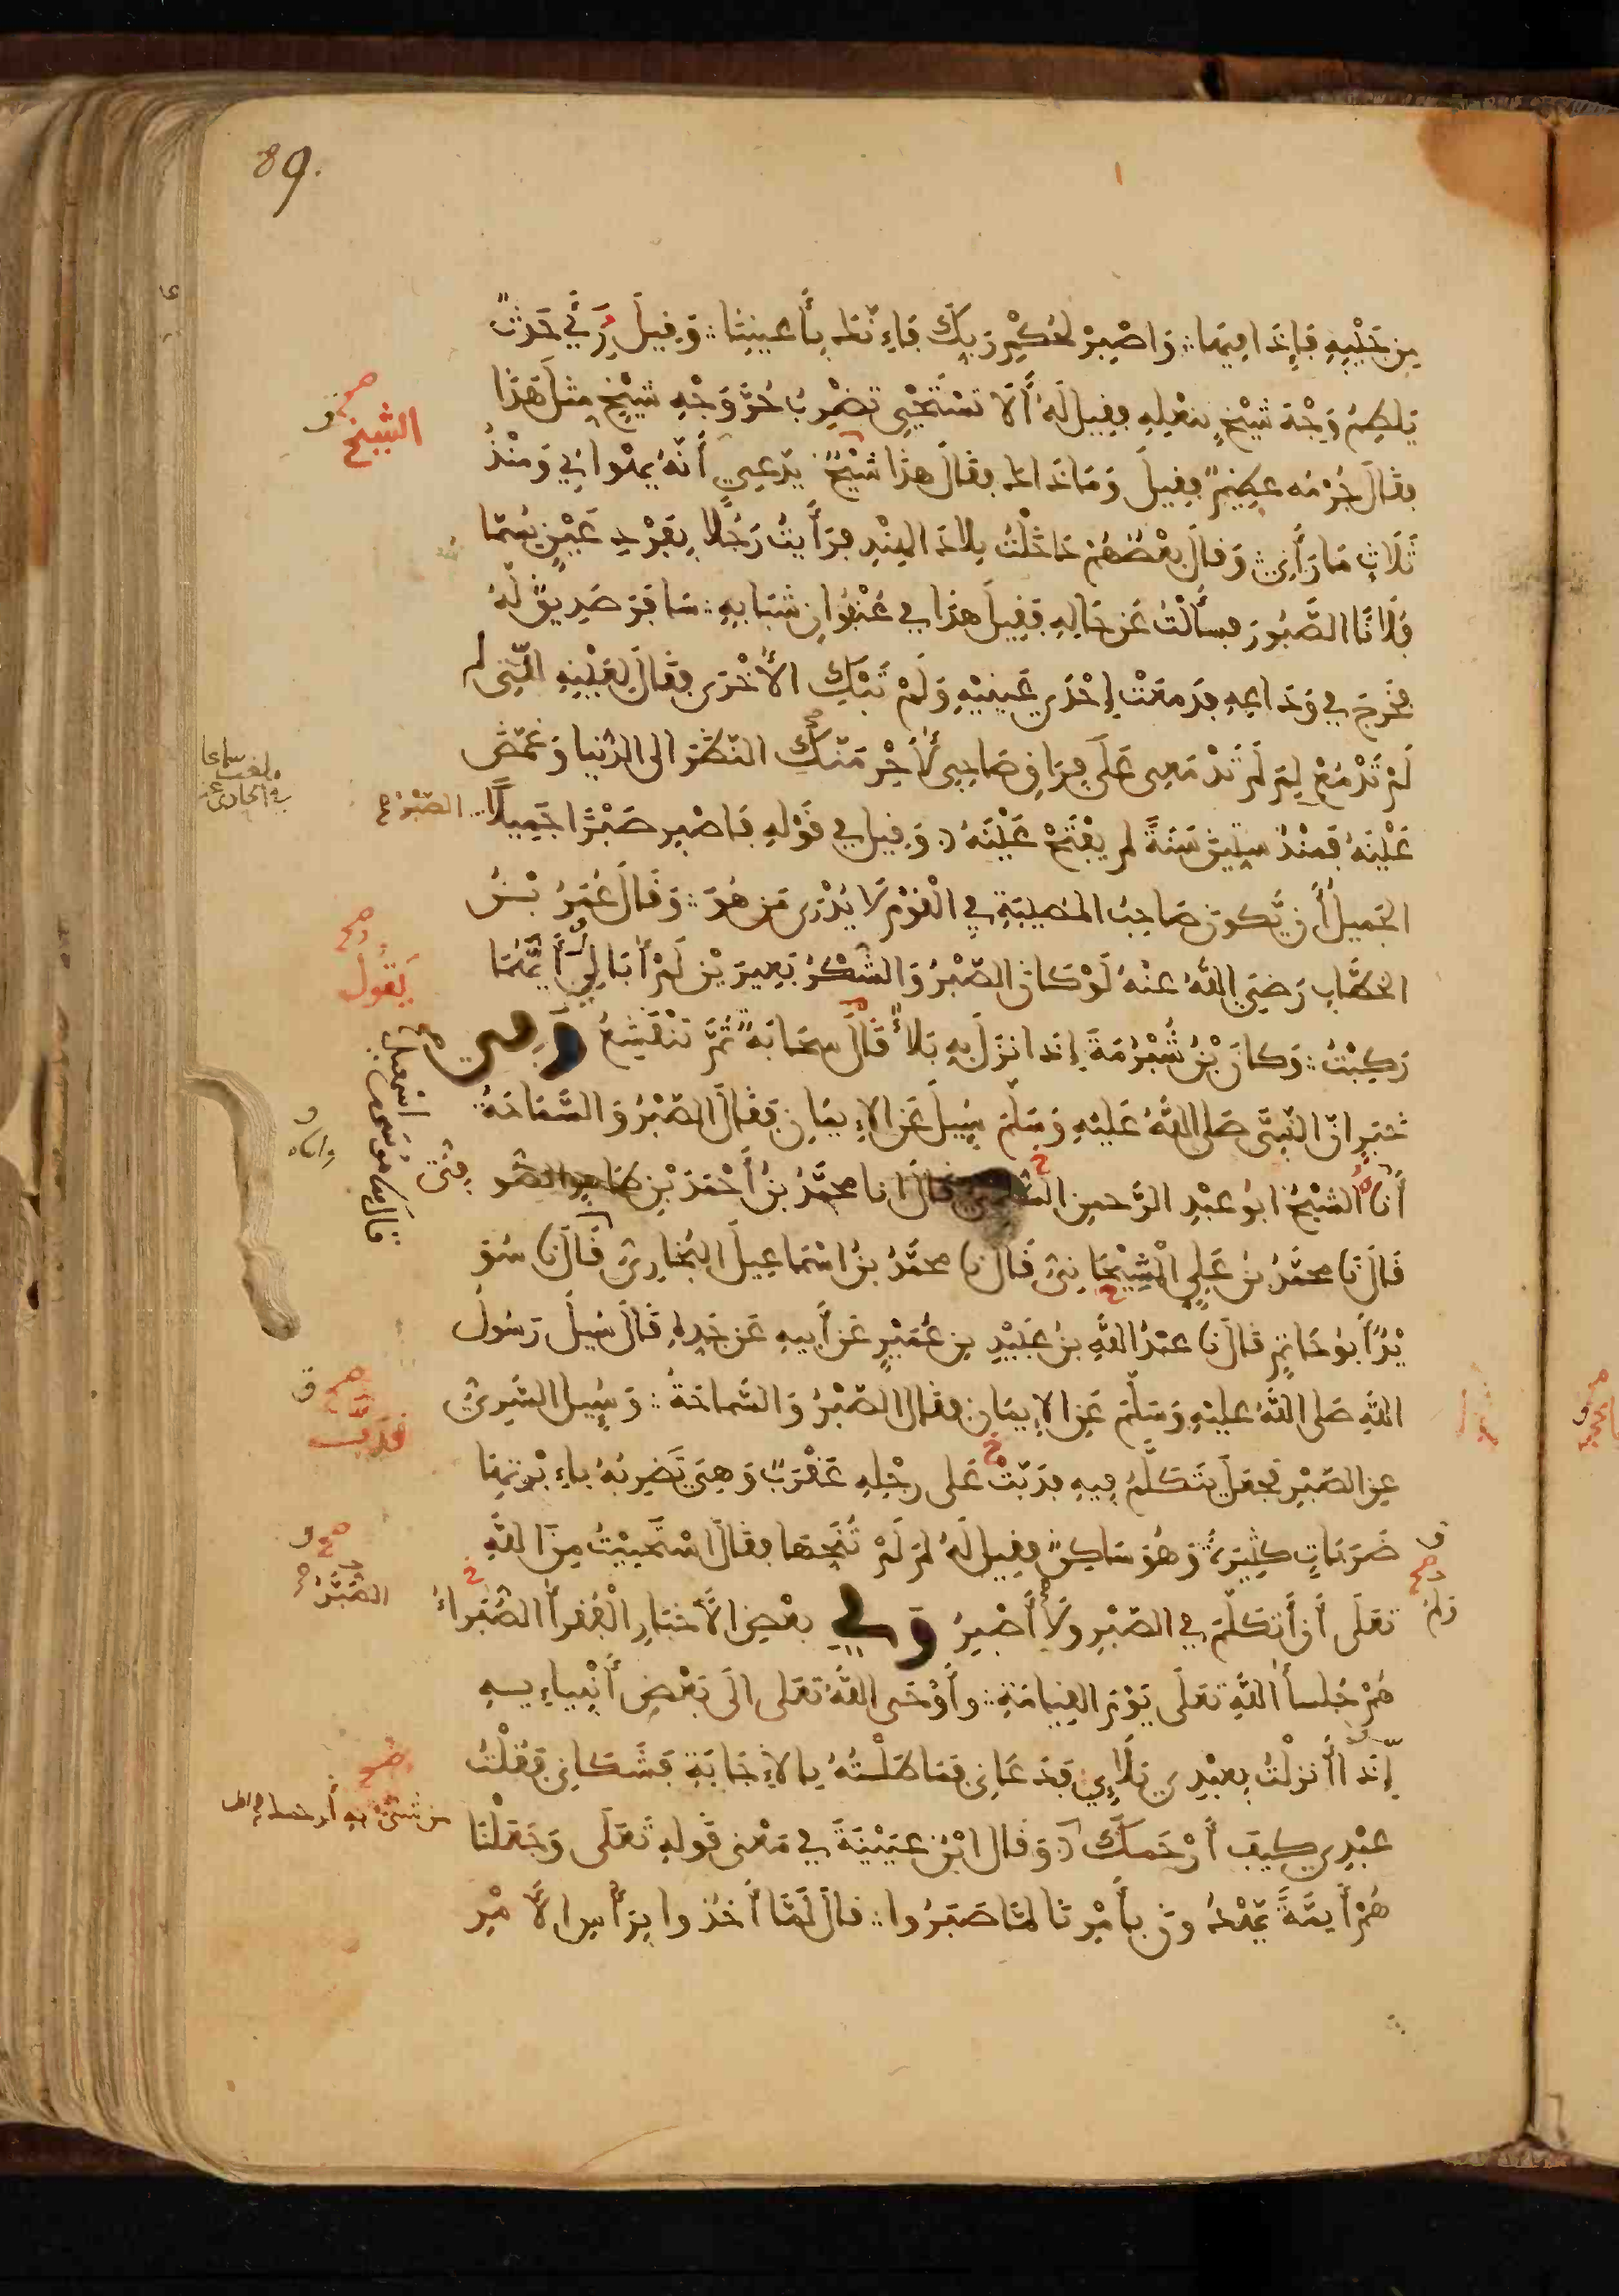 89.
من جَيْبِهِ فَإِذَا فِيهَا وَاصْبِرْ لِحُكْمِ رَبِّكَ فَإِنَّكَ بِأَعْيُنِنَا وَقِيلَ رُئِيَ حَدَثٌ
يَلْطِمُ وَجْهَ شَيْخٍ بِنَعْلِهِ فقيل لَهُ أَلَا تَسْتَحْيِي تَضْرِبُ حُرَّ وَجْهِ شَيْخٍ مِثْلَ هَذَا
الشيخ
فقَالَ جُرْمُه عظِيمٌ فقِيلَ وَمَا ذَاكَ فقَالَ هذَا شَيْخٌ يَدَّعِي أَنَّهُ يهْوَانِي وَمُنْذُ
ثَلَاثٍ مَا رَأَنِي وَقالَ بعْضُهُمْ دَخَلْتُ بِلَادَ الهِنْدِ فرَأَيْتُ رَجُلًا بِفَرْدِ عَيْنٍ يُسَمَّا
فُلَانًا الصَّبُورَ فسأَلْتُ عَنْ حَالِهِ فَقِيلَ هذَا فِي عُنْفُوانِ شَبَابِهِ سَافَرَ صَدِيقٌ لَهُ
فَخَرَجَ فِي وَدَاعِهِ فدَمَعَتْ إِحْدَى عَيْنَيْهِ وَلَمْ تَبْكِ الأُخْرَى فقَالَ لِعَيْنِهِ الَّتِي لم
لَمْ تَدْمَعْ لِمَ لَمْ تَدْمَعِي عَلَى فِرَاقِ صَاحِبِي لَأَحْرِمَنَّكِ النَّظَرَ الى الدُّنيا وَغَمَّضَ
عَيْنَهُ فَمُنْذُ سِتِّينَ سَنَةً لم يَفْتَحْ عَيْنَهُ وَقِيلَ فِي قَوْلِهِ فَاصْبِرْ صَبْرًا جَمِيلًا
الصَّبْرُ
الجَمِيلُ أَنْ يَّكُونَ صَاحِبُ المُصِيبَةِ فِي الْقَوْمِ لَا يُدْرَى مَنْ هُوَ وَقَالَ عُمَرُ بْنُ
الخطَّابِ رَضِيَ اللَّهُ عنْهُ لَوْ كَانَ الصَّبْرُ وَالشُّكْرُ بَعِيرَيْنِ لَمْ أُبَالِي أَيَّهُمَا
يَقُول
رَكِبْتُ وَكانَ بْنُ شُبْرُمَةَ إذا نزَلَ بِهِ بَلَاءٌ قَالَ سحَابَةٌ ثُمَّ تَنْقَشِعُ وَفِي
خَبَرِ انَّ النَّبِيَّ صَلى اللَّهُ عَلَيْهِ وَسَلَّمَ سُئِلَ عَنِ الإِيمَانِ فَقَالَ الصَّبْرُ وَالسَّمَاحَةُ
أَنا الشَيْخُ ابُو عبْدِ الرَّحمنِ السُّلَمِي قَالَ انا محمَّدُ بنُ أَحْمَدَ بْنِ طَاهِرٍ الصُّو
فِيُّ
قَالَ نَا محمَّدُ بنُ عَلِيٍّ قَالَ نا محمَّدُ بنُ اسْمَاعِيلَ البُخَارِيُّ قَالَ نا
قال نا موسى بن اسْمعيل
أَبُو حَاتِمٍ قَالَ نا عبْدُ اللَّهِ بنُ عُبَيْدِ بنِ عُمَيْرٍ عَنْ أَبِيهِ عَنْ جَدِّهِ قَالَ سُئِلَ رَسُولُ
اللَّهِ صَلى اللَّهُ عليْهِ وَسَلَّمَ عَنِ الإِيمَانِ فقَال الصَّبْرُ وَالسَّمَاحَةُ وَسُئِلَ السَّرِيُّ
عنِ الصَّبْرِ فجعَلَ يَتَكَلَّمُ فِيهِ فدَبَّتْ عَلى رِجْلِهِ عَقْرَبٌ وَهِيَ تَضْرِبُهُ بِإِبْرَتِهَا
ضَرَبَاتٍ كثِيرَةً وَهُوَ سَاكِنٌ فقِيل لَهُ لِمَ لَمْ تُنَحِّهَا فقَالَ اسْتَحْيَيْتُ مِنَ اللَّهِ
الصُّبَّرُ
تعَلَى أَنْ أَتَكَلَّمَ فِي الصَّبْرِ ولَا أَصْبِرُ وَفِي بعْضِ الأَخبَارِ الْفُقَرَاءُ الصُّبَرَاءُ
هُمْ جُلَسَاءُ اللَّهِ تعَلَى يَوْمَ القِيَامَةِ وأَوْحَى اللَّهُ تعَلى الَى بَعْضِ أَنْبِيَاءِيهِ
إِذَا أَنْزَلْتُ بِعبْدِي بَلَاءِي فَدَعَانِي فمَاطَلْتُهُ بِالإِجَابَةِ فَشَكَانِي فَقُلْتُ
عبْدِي كيفَ أَرْحَمُكَ وَقال ابْنُ عُيَيْنَةَ فِي مَعْنى قَولِهِ تَعَلَى وَجَعَلْنَا
من شيْءٍ بهِ أَرحمك
هُمْ أَيِمَّةً يَّهْدُونَ بِأَمْرِنَا لَمَّا صَبَرُوا قَالَ لَمَّا أَخَذُوا بِرَأْسِ الأَمْرِ